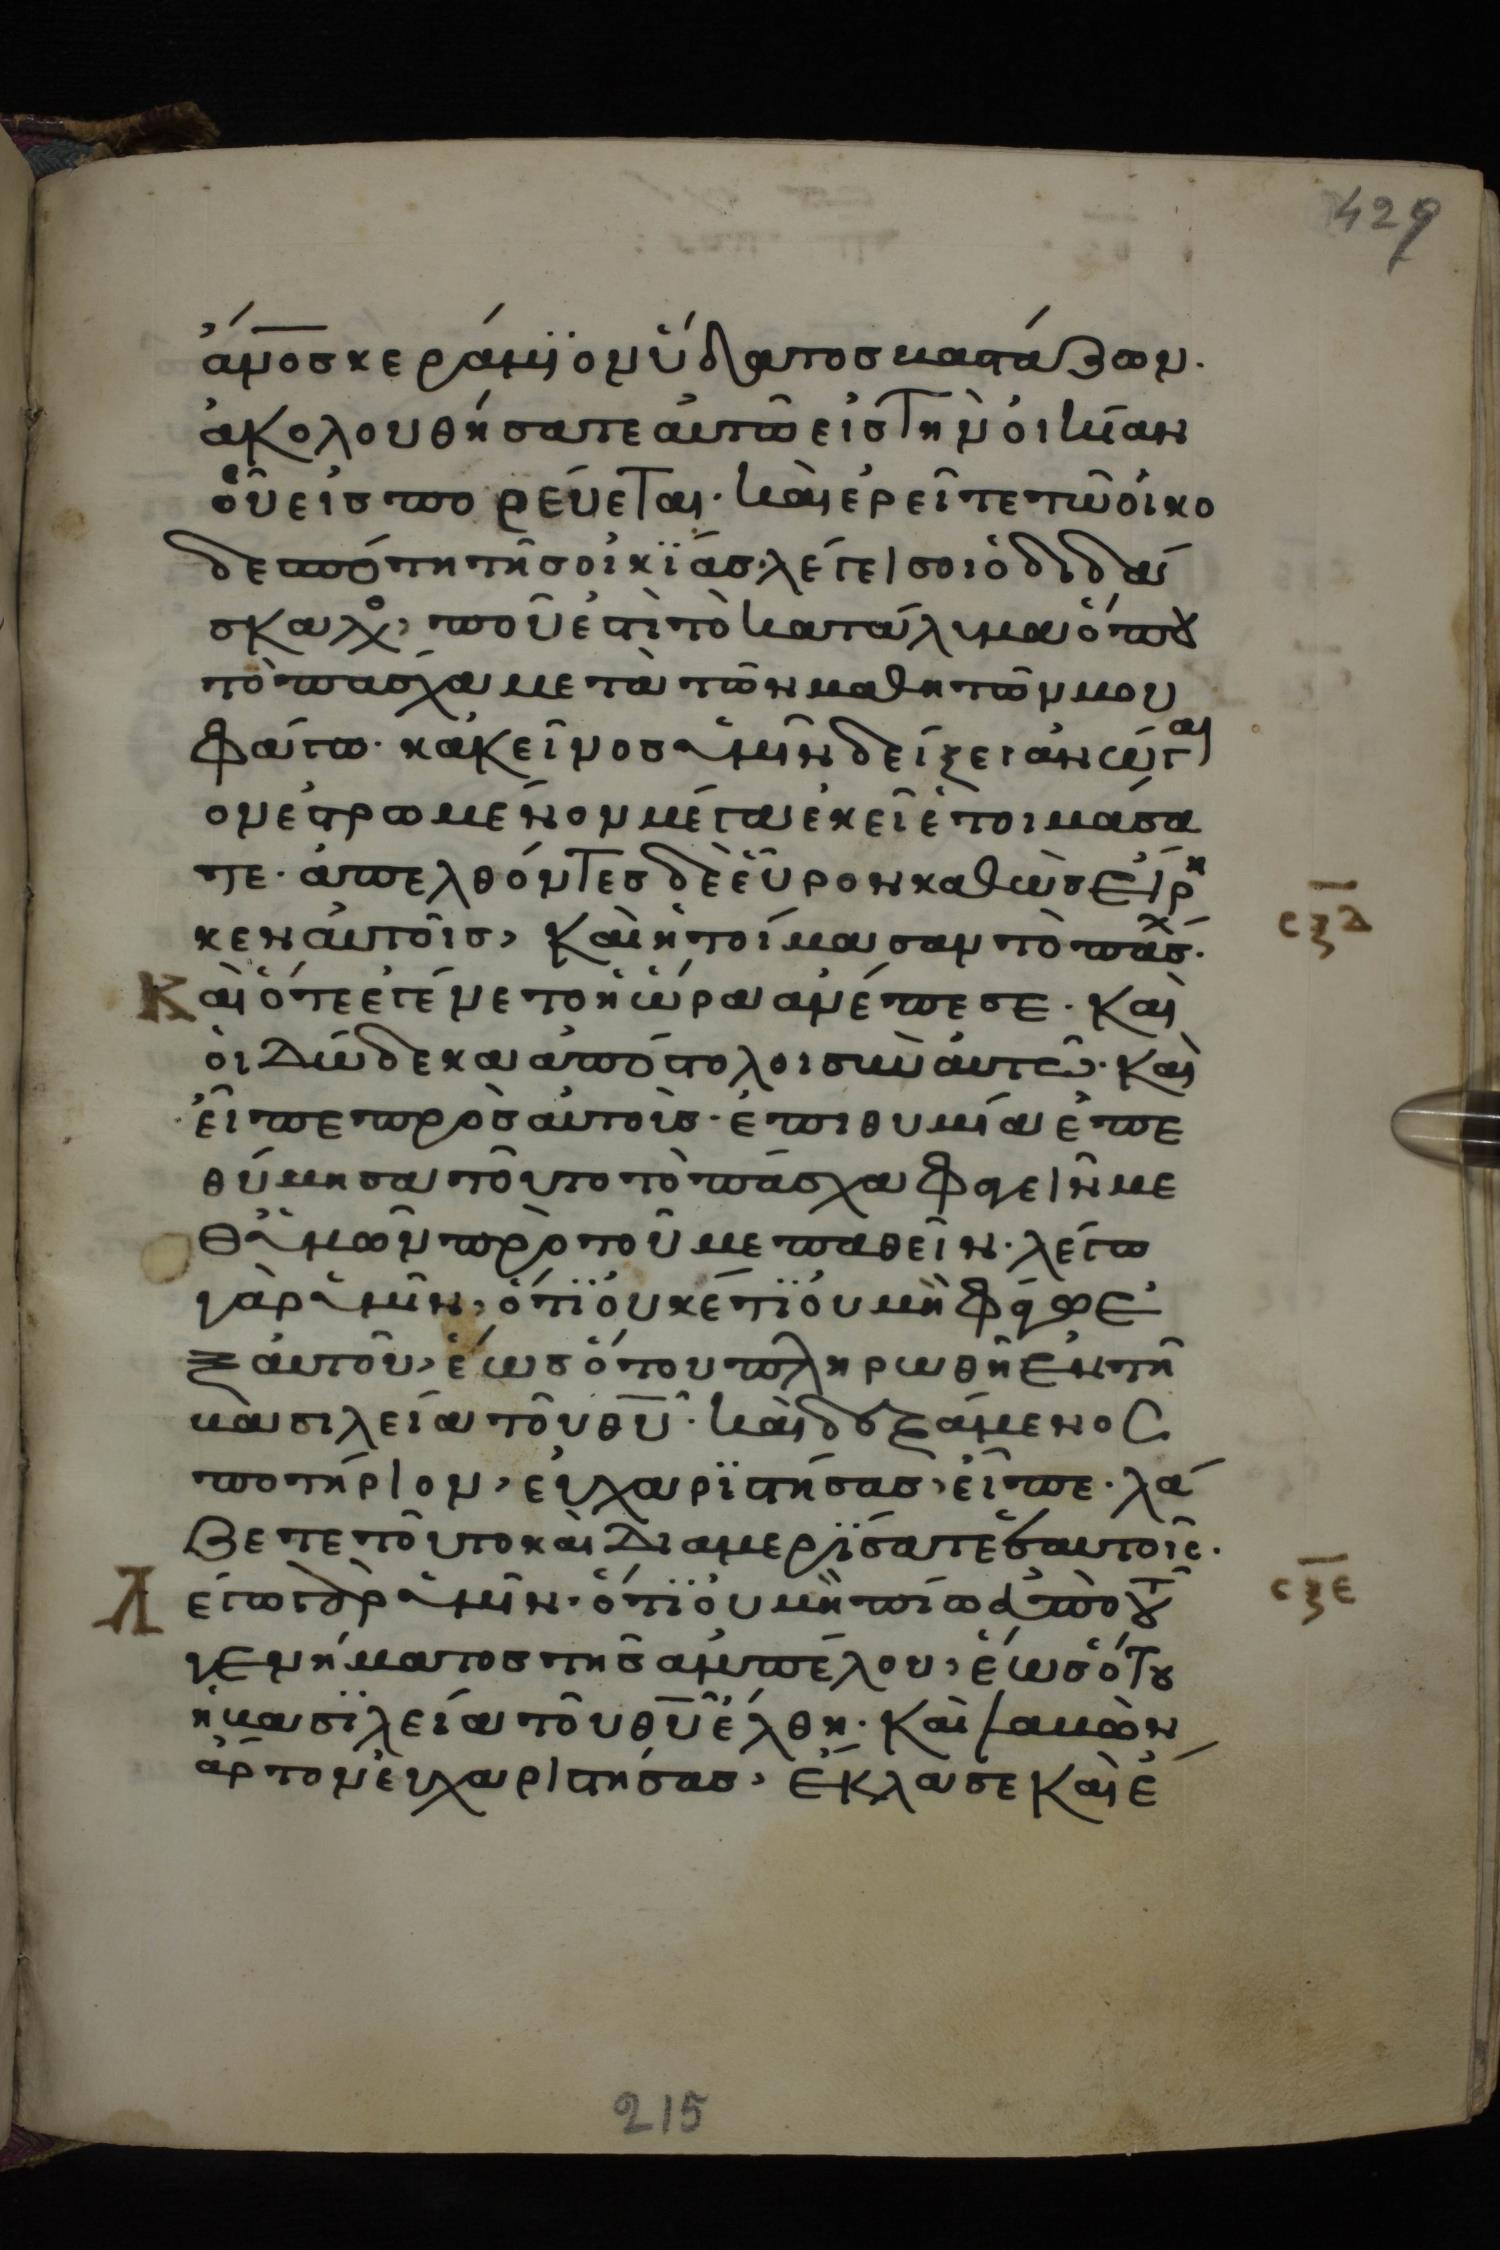 429
ἄν̅οσ κεράμϊον ὕδατοσ βαστάζων.
ἀκολουθήσατε αὐτῶ εἰσ τὴν οἰκίαν
οὗ εἰσπορεύεται. καὶ ἐρεῖτε τῶ οἰκο
δεσπότη τῆσ οἰκϊάσ. λέγει σοι ὁ διδά
σκαλο, ποῦ ἐστὶ τὸ κατάλυμα ὅπου
τὸ πάσχα μετὰ τῶν μαθητῶν μου
φάγω. κἀκεῖνοσ ὑμῖν δείξει ἀνώγαι
ον ἐστρωμένον μέγα ἐκεῖ ἑτοιμάσα
τε. ἀπελθόντεσ δὲ εὗρον καθὼσ εἴρη
κεν αὐτοῖσ, καὶ ἡτοίμασαν τὸ πάσχ.
σξδ
Καὶ ὅτε ἐγένετο ἡ ὥρα ἀνέπεσε. καὶ
οἱ δώδεκα ἀπόστολοι σὺν αὐτῶ. καὶ
εἶπε πρὸσ αὐτοὺσ. ἐπιθυμία ἐπε
θύμησα τοῦτο τὸ πάσχα φαγεῖν με
θ' ὑμῶν πρὸ τοῦ με παθεῖν. λέγω
γὰρ ὑμῖν, ὅτϊ οὐκέτϊ οὐ μὴ φάγω ἐ
ξ αὐτοῦ, ἕωσ ὅτου πληρωθῆ ἐν τῆ
βασιλεία τοῦ θ̅υ̅. καὶ δεξάμενοσ
ποτήριον, εὐχαρϊστήσασ, εἶπε. λά
βετε τοῦτο καὶ διαμερϊσατε ἑαυτοῖσ.
Λέγω γὰρ ὑμῖν. ὅτϊ οὐ μὴ πίω ἀπὸ τοῦ
σξε
γενήματοσ τῆσ ἀμπέλου, ἕωσ ὅτου
ἡ βασϊλεία τοῦ θ̅υ̅ ἔλθη. καὶ λαβὼν
ἄρτον εὐχαριστήσασ, ἔκλασε καὶ ἔ
215